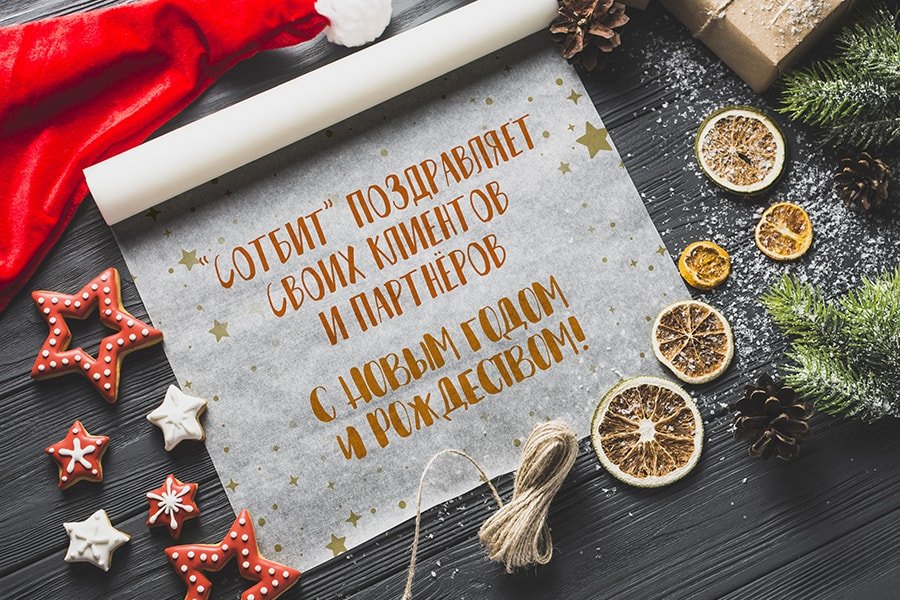 “СОТБИТ” ПОЗДРАВЛЯЕТ
СВОИХ КЛИЕНТОВ
И ПАРТНЁРОВ
С НОВЫМ ГОДОМ
И РОЖДЕСТВОМ!